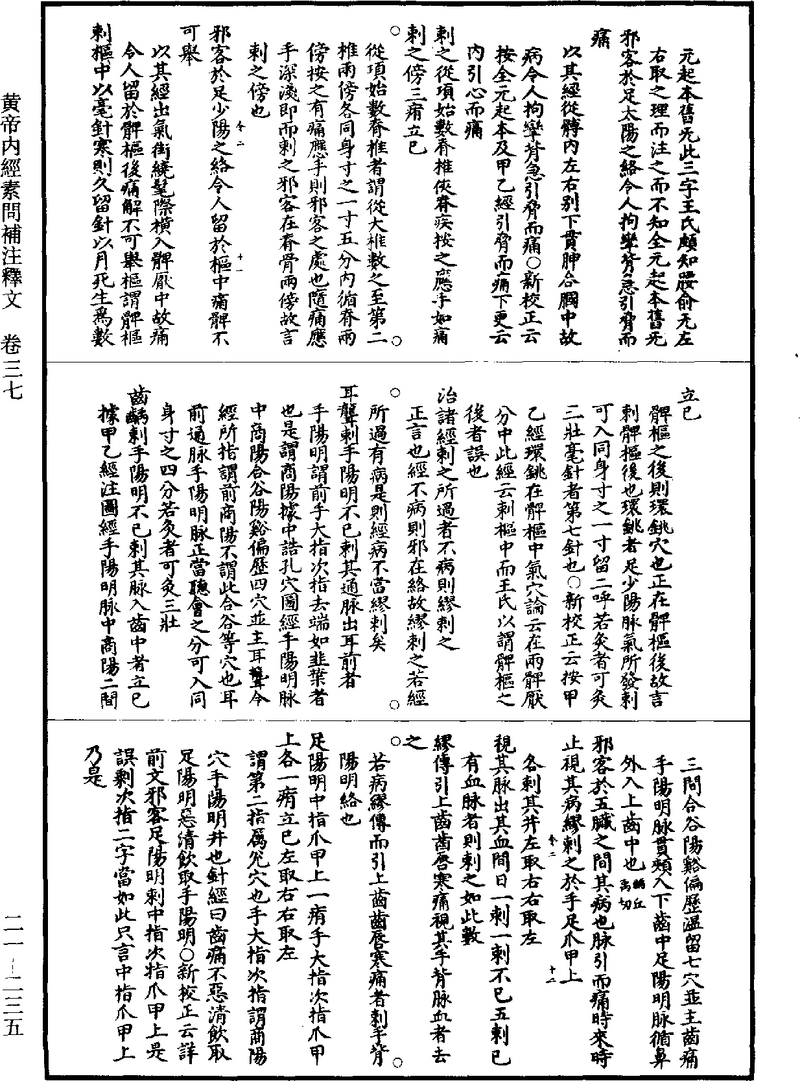 元起本舊无此三字王氏頗知腰俞无左
右取之理而注之而不知全元起本舊无
邪客於足太陽之絡令人拘攣背急引脅而
痛
以其經從髆內左右别下貫胂合膕中故
病令人拘攣背急引脅而痛○新校正云
按全元起本及甲乙經引脅而痛下更云
內引心而痛
刺之從項始數脊椎俠脊疾按之應手如痛
刺之傍三痏立已
從項始數脊椎者謂從大椎數之至第二
椎兩傍各同身寸之一寸五分内循脊兩
傍按之有痛應手則邪客之處也隨痛應
手深淺即而刺之邪客在脊骨兩傍故言
刺之傍也
邪客於足少陽之絡令人留於樞中痛髀不
可舉
以其經出氣街繞髦際橫入髀厭中故痛
令人留於髀樞後痛解不可舉樞謂髀樞
刺樞中以毫針寒則久留針以月死生爲數
立已
髀樞之後則環銚穴也正在髀樞後故言
刺髀樞後也環銚者足少陽脉氣所發刺
可入同身寸之一寸留二呼若灸者可灸
二壯毫針者第七針也○新校正云按甲
乙經環銚在髀樞中氣穴論云在兩髀厭
分中此經云刺樞中而王氏以謂髀樞之
後者誤也
治諸經刺之所過者不病則繆刺之
正言也經不病則邪在絡故繆刺之若經
所過有病是則經病不當繆刺矣
耳聾刺手陽明不已刺其通脉出耳前者
手陽明謂前手大指次指去端如韭葉者
也是謂商陽據中誥孔穴圖經手陽明脉
中商陽合谷陽谿偏歷四穴並主耳聾今
經所指謂前商陽不謂此合谷等穴也耳
前通脉手陽明脉正當聽會之分可入同
身寸之四分若灸者可灸三壯
齒齲刺手陽明不已刺其脉入齒中者立已
據甲乙經注圖經手陽明脉中商陽二間
三間合谷陽谿偏歷溫留七穴並主齒痛
手陽明脉貫頰入下齒中足陽明脉循鼻
外入上齒中也齲丘禹切
邪客於五臟之間其病也脉引而痛時來時
止視其病繆刺之於手足爪甲上
各刺其井左取右右取左
視其脉出其血間日一刺一刺不已五刺已
有血脉者則刺之如此數
繆傳引上齒齒唇寒痛視其手背脉血者去
之
若病繆傳而引上齒齒唇寒痛者刺手背
陽明絡也
足陽明中指爪甲上一痏手大指次指爪甲
上各一痏立已左取右右取左
謂第二指厲兌穴也手大指次指謂商陽
穴手陽明井也針經曰齒痛不惡清飲取
足陽明惡清飲取手陽明○新校正云詳
前文邪客足陽明刺中指次指爪甲上是
誤剩次指二字當如此只言中指爪甲上
乃是
黄帝内經素問補注釋文 卷三七
二一—二三五